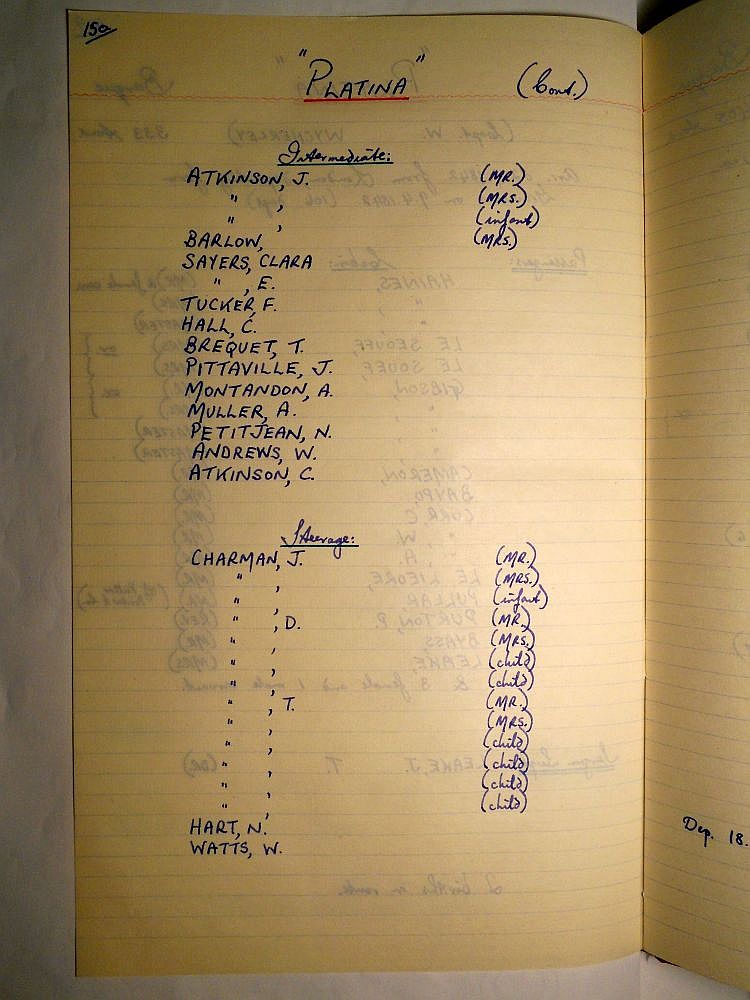 150
"PLATINA" (Cont.)
Intermediate:
ATKINSON, J. (MR.)
" , (MRS.)
" , (infant)
BARLOW, (MRS.)
SAYERS, CLARA
" , E.
TUCKER, F.
HALL, C.
BREQUET, T.
PITTAVILLE, J.
MONTANDON, A.
MULLER, A.
PETITJEAN, N.
ANDREWS, W.
ATKINSON, C.
Steerage:
CHARMAN, J. (MR.)
" , (MRS.)
" , (infant)
" , D. (MR.)
" , (MRS.)
" , (child)
" , (child)
" , T. (MR.)
" , (MRS.)
" , (child)
" , (child)
" , (child)
" , (child)
HART, N.
WATTS, W.
Dep. 18.